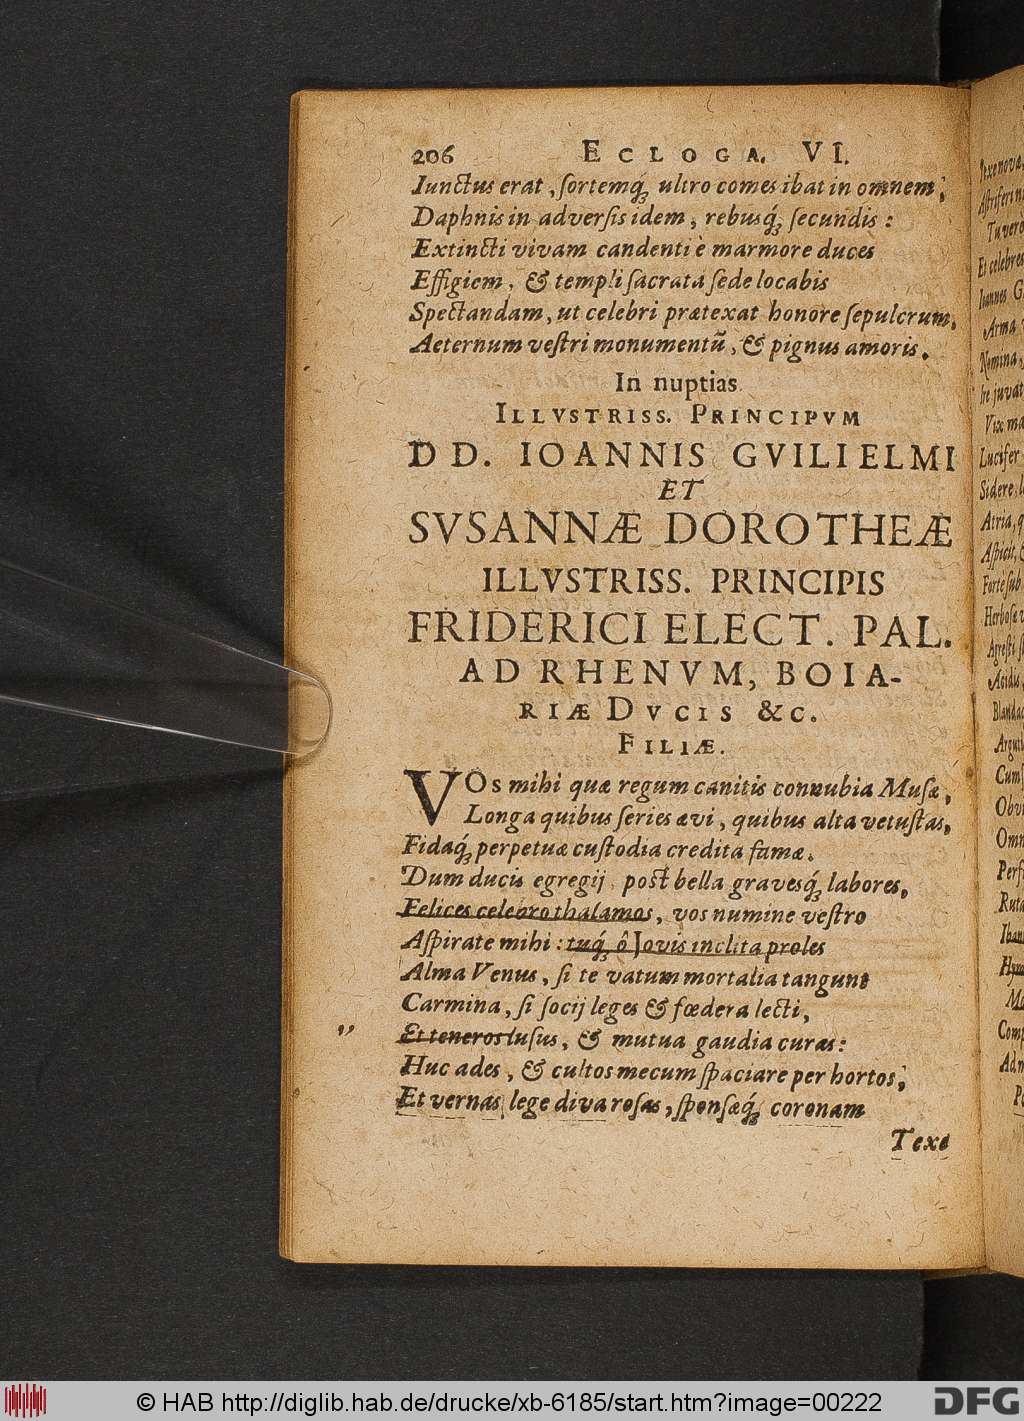 206 ECLOGA. VI.
Iunctus erat, sortemq́; ultro comes ibat in omnem;
Daphnis in adversis idem, rebusq́; secundis:
Extincti vivam candenti è marmore duces
Effigiem, & templi sacrata sede locabis
Spectandam, ut celebri prætexat honore sepulcrum,
Aeternum vestri monumentũ, & pignus amoris.
In nuptias
ILLVSTRISS. PRINCIPVM
DD. IOANNIS GVILIELMI
ET
SVSANNÆ DOROTHEÆ
ILLVSTRISS. PRINCIPIS
FRIDERICI ELECT. PAL.
AD RHENVM, BOIA-
RIÆ DVCIS &C.
FILIÆ.
VOs mihi quæ regum canitis connubia Musæ,
Longa quibus series ævi, quibus alta vetustas,
Fidaq́; perpetuæ custodia credita famæ.
Dum ducis egregij post bella gravesq́; labores,
Felices celebro thalamos, vos numine vestro
Aspirate mihi: tuq́; ô Jovis inclita proles
Alma Venus, si te vatum mortalia tangunt
Carmina, si socij leges & fœdera lecti,
Et teneros lusus, & mutua gaudia curas:
Huc ades, & cultos mecum spaciare per hortos,
Et vernas lege diva rosas, sponsæq́; coronam
Texe
Texe nova,
Tu verò
Et celebres
Ioannes G
Arma
Nomina,
Ire juvat
Vix ma
Lucifer
Sidere
Atria, q
Aspicit,
Forte sub
Herbosæ
Agresti
Acidis
Omn
© HAB http://diglib.hab.de/drucke/xb-6185/start.htm?image=00222
DFG